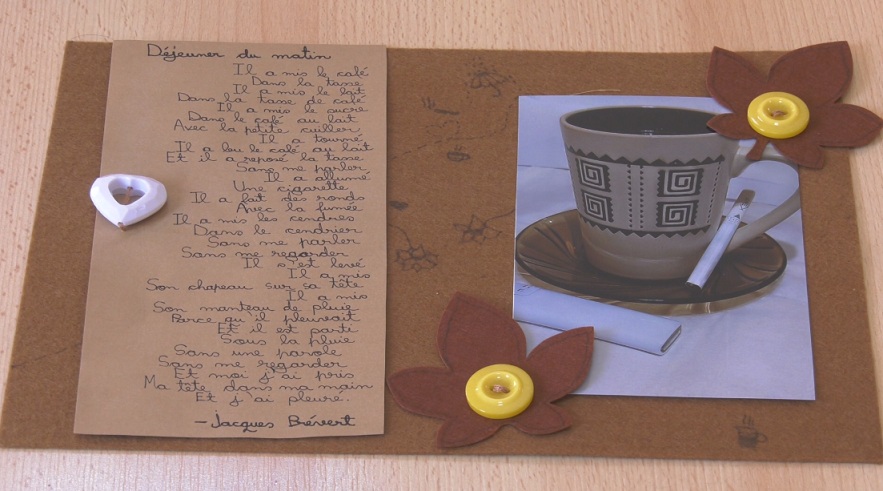 Déjeuner du matin
Il a mis le café
Dans la tasse
Il a mis le lait
Dans la tasse de café
Il a mis le sucre
Dans le café au lait
Avec la petite cuiller
Il a tourné
Il a bu le café au lait
Et il a reposé la tasse
Sans me parler
Il a allumé
Une cigarette
Il a fait des ronds
Avec la fumée
Il a mis les cendres
Dans le cendrier
Sans me parler
Sans me regarder
Il s'est levé
Il a mis
Son chapeau sur sa tête
Il a mis
Son manteau de pluie
Parce qu'il pleuvait
Et il est parti
Sous la pluie
Sans une parole
Sans me regarder
Et moi j'ai pris
Ma tête dans ma main
Et j'ai pleuré.
- Jacques Prévert